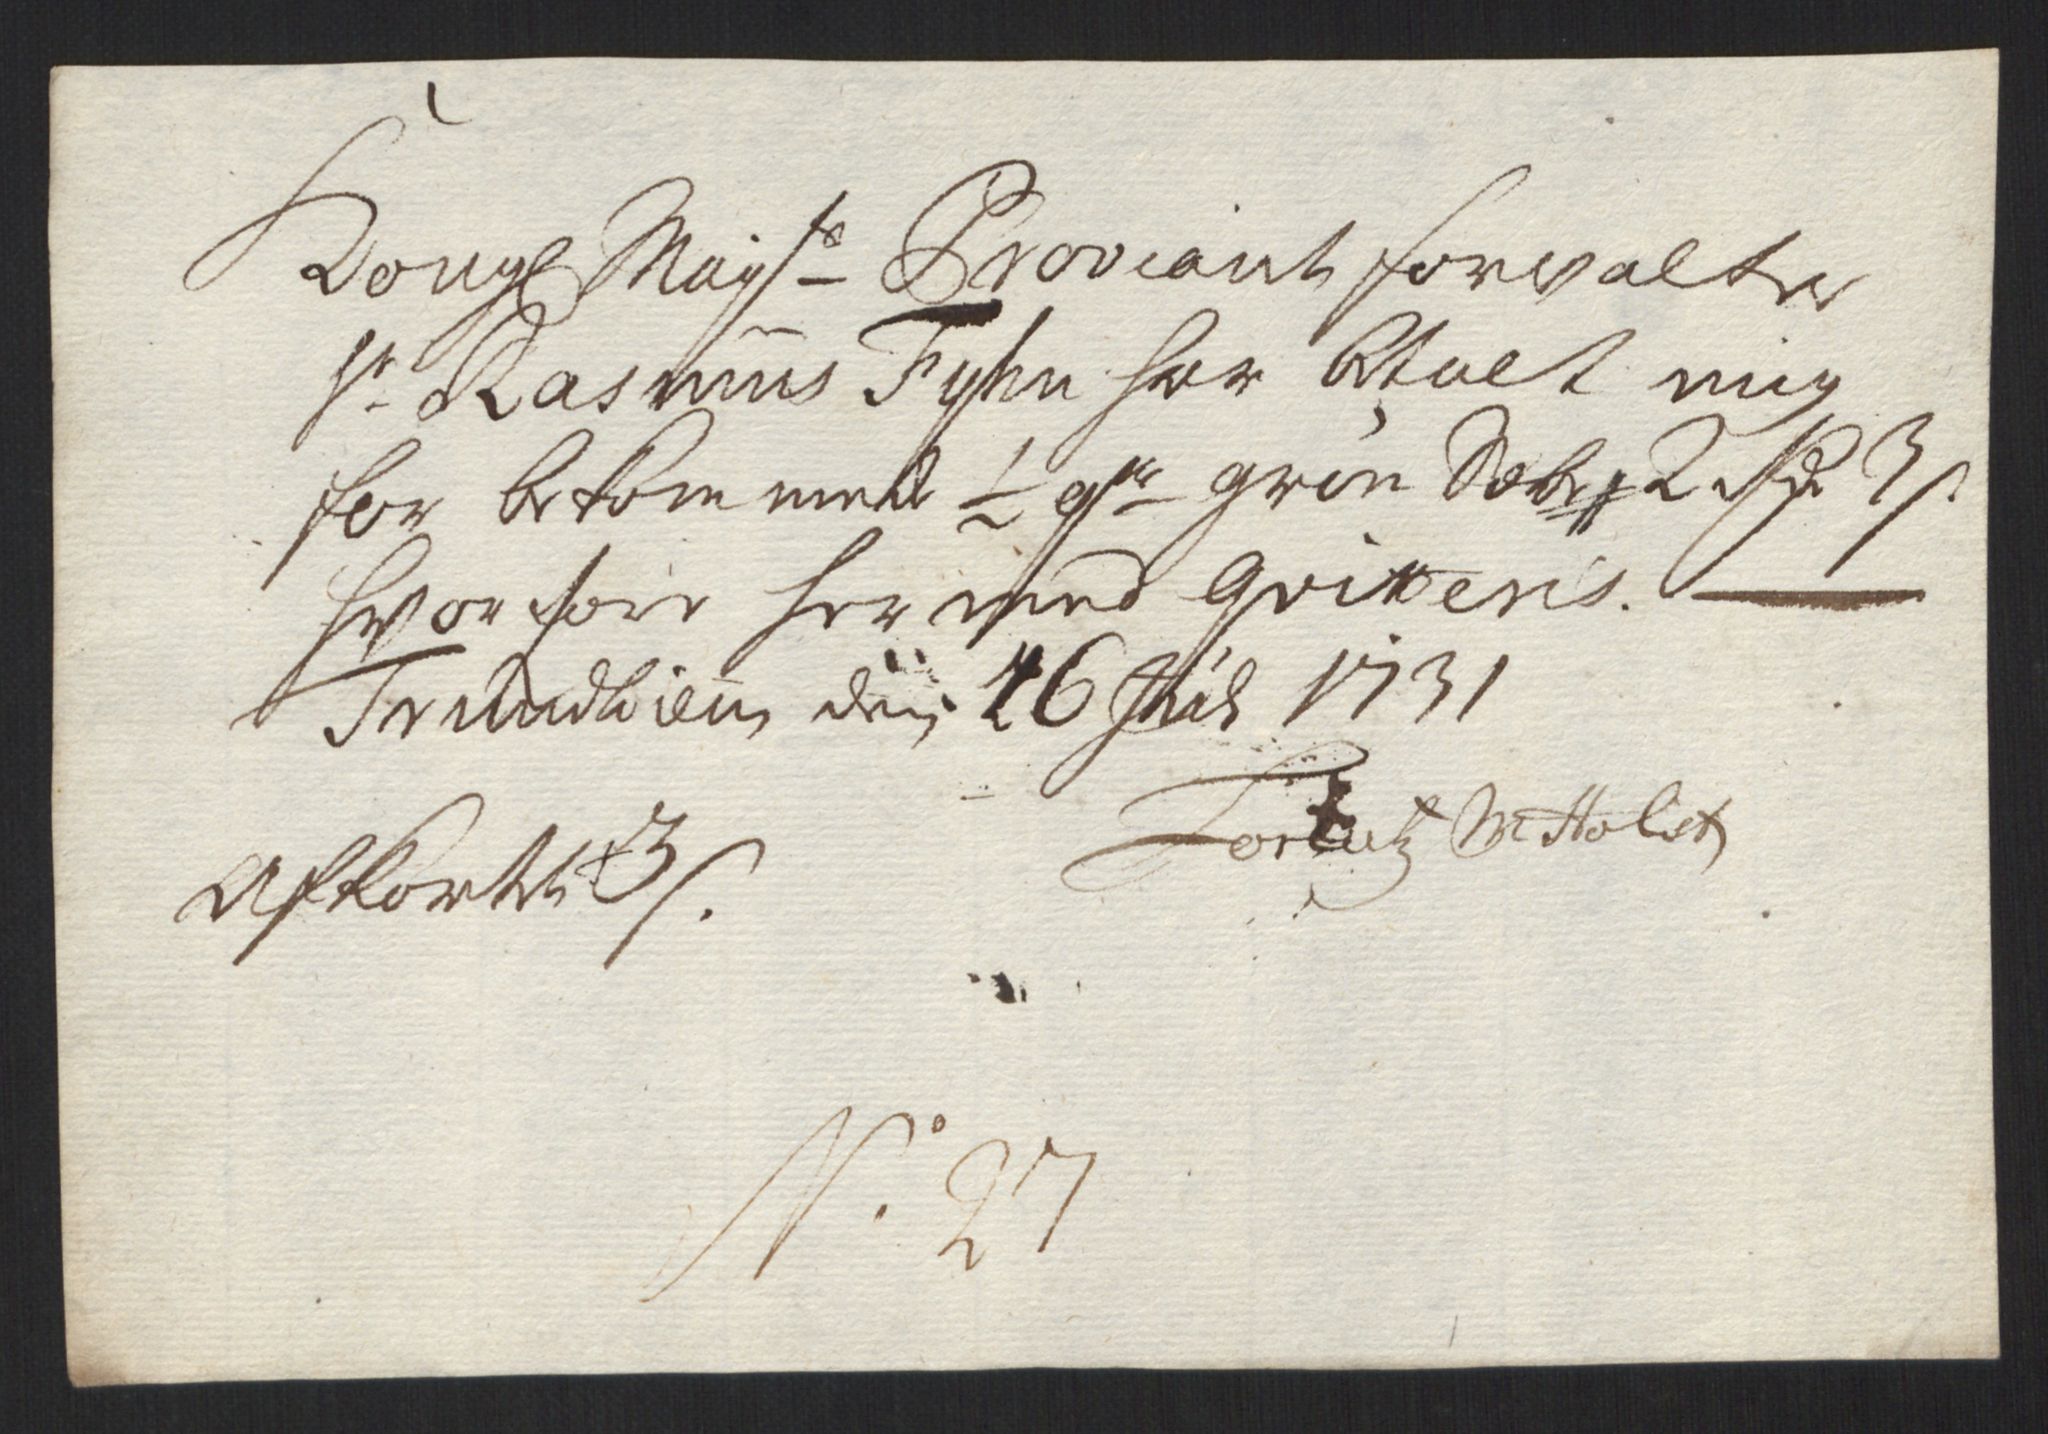 Kongl Mayts Proviant forvalter
Hr Rasmus Fyhn har betalt mig
for bekommed 1/2 qr grön Sebe 2 rdr 3 s.
hvorfore her med qvitteris.
Trundhiem den 16 Juli 1731
Lorentz M Holst
Afkorted 3 s.
No. 27